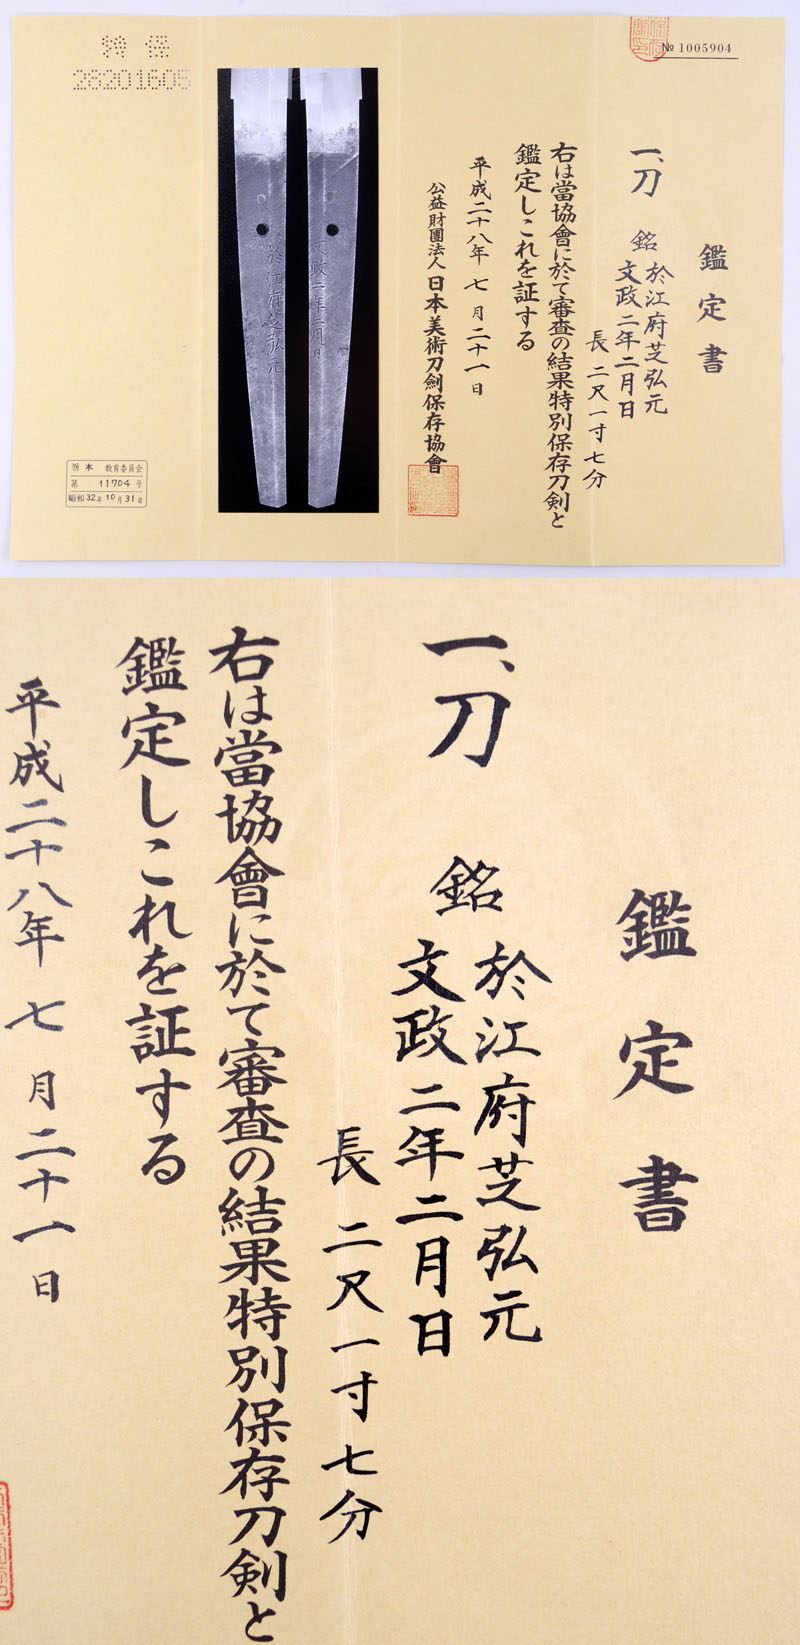 № 1005904
鑑定書
一、刀
銘 於江府芝弘元
文政二年二月日
長 二尺一寸七分
右は當協會に於て審査の結果特別保存刀剣と
鑑定しこれを証する
平成二十八年 七月二十一日
公益財團法人 日本美術刀劍保存協會
於江府芝弘元
文政二年二月日
特保
28201605
栃木 教育委員会
第 11704 号
昭和32年10月31日
鑑定書
一、刀
銘 於江府芝弘元
文政二年二月日
長 二尺一寸七分
右は當協會に於て審査の結果特別保存刀剣と
鑑定しこれを証する
平成二十八年 七月二十一日